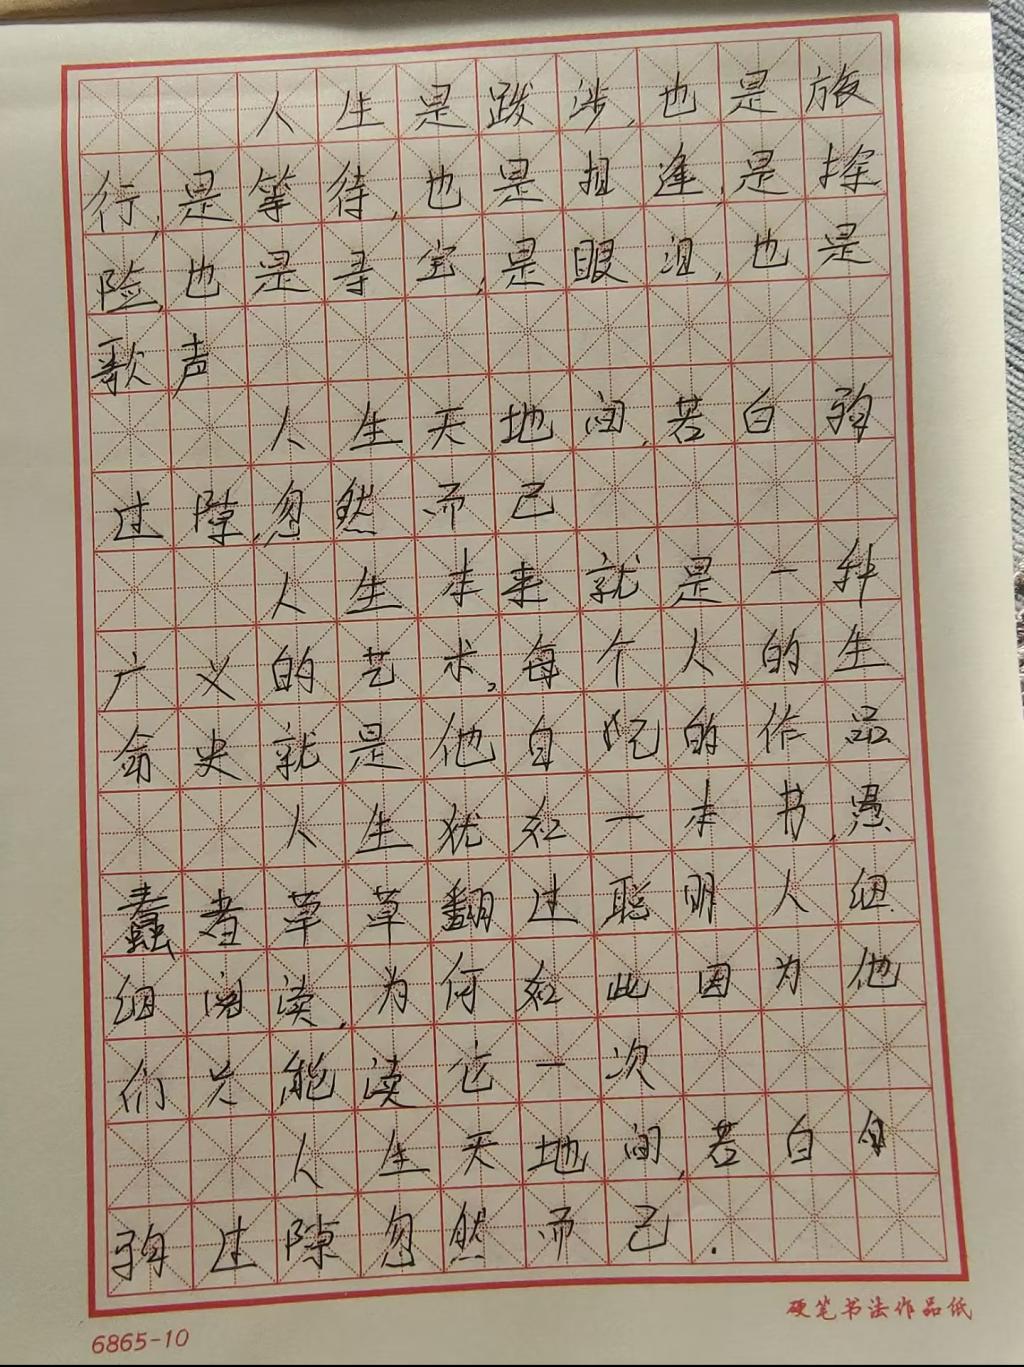 人生是跋涉,也是旅
行,是等待,也是相逢,是探
险,也是寻宝,是眼泪,也是
歌声
人生天地间,若白驹
过隙,忽然而已
人生本来就是一种
广义的艺术,每个人的生
命史就是他自己的作品
人生犹如一本书,愚
蠢者草草翻过聪明人细
细阅读,为何如此因为他
们只能读它一次
人生天地间,若白白
驹过隙忽然而已.
硬笔书法作品纸
6865-10